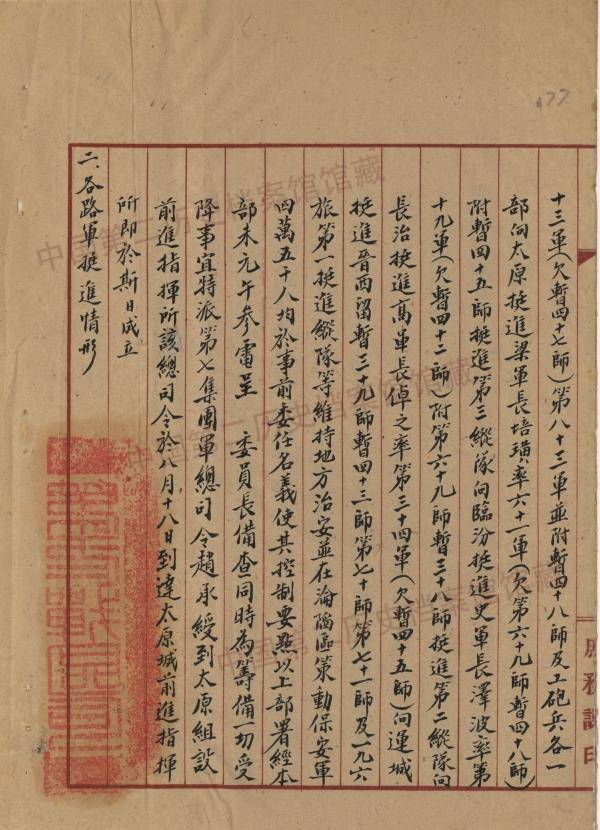 十三軍(欠暫四十七師)第八十三軍並附暫四十八師及工砲兵各一
部向太原挺進梁軍長培璜率六十一軍(欠第六十九師暫四十八師)
附暫四十五師挺進第三縱隊向臨汾挺進史軍長澤波率第
十九軍(欠暫四十二師)附第六十九師暫三十八師挺進第二縱隊向
長治挺進高軍長倬之率第三十四軍(欠暫四十五師)向運城
挺進晉西留暫三十九師暫四十三師第七十師第七十一師及一九六
旅第一挺進縱隊等維持地方治安並在淪陷區策動保安軍
四萬五千人均於事前委任名義使其控制要點以上部署經本
部未元午參電呈 委員長備查同時為籌備一切受
降事宜特派第七集團軍總司令趙承綬到太原組設
前進指揮所該總司令於八月十八日到達太原城前進指揮
所即於斯日成立
二、各路軍挺進情形
77
中國第二歷史檔案館館藏